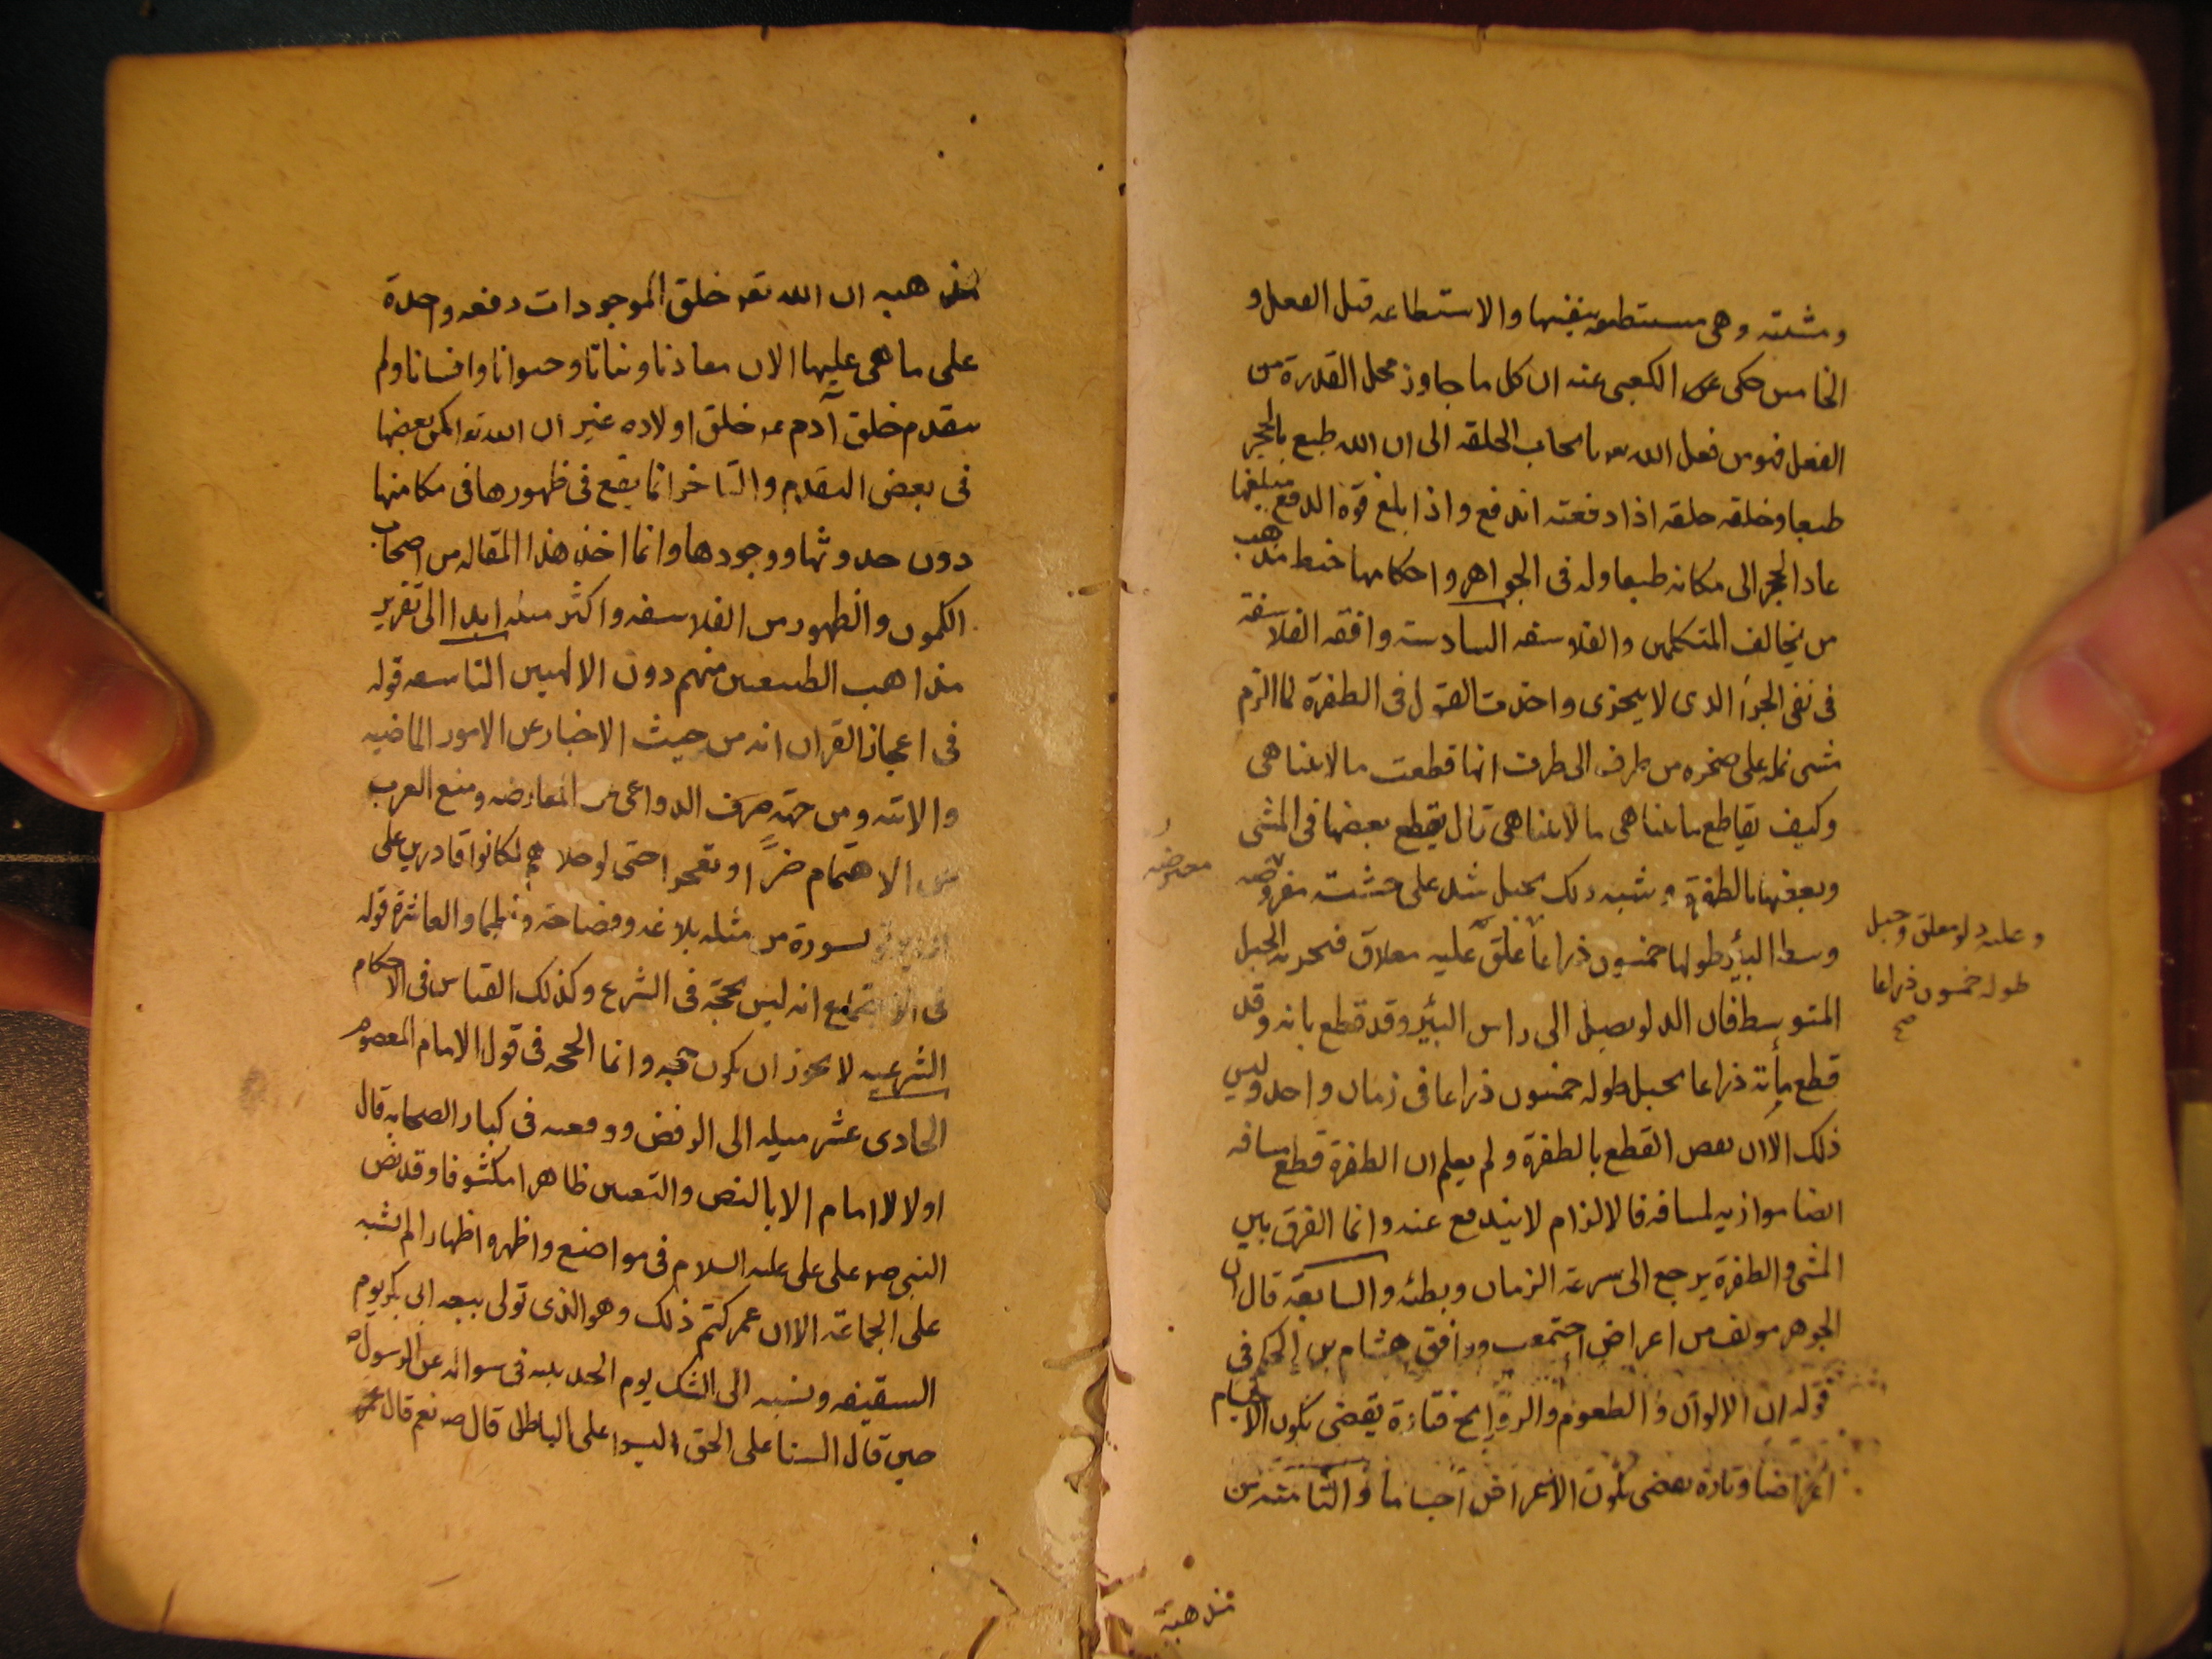 ومشيته وهى مستطيعة بنفسها والاستطاعه قبل الفعل و
الخامس حكى عن الكعبى عنه ان كل ما جاوز محل القدرة من
الفعل فهو من فعل الله تعه بايجاب الخلقه الى ان الله طبع بالحجر
طبعا وخلقه خلقه اذا دفعته اندفع واذا بلغ قوة الدفع مبلغها
عاد الحجر الى مكانه طبعا وله فى الجواهر واحكامها خبط مذهب
من يخالف المتكلمين والفلاسفه السادسة وافقه الفلاسفة
فى نفى الجزأ الذى لا يتجزى واحدث القول فى الطفرة لما الزم
مشى نمله على صخره من طرف الى طرف انها قطعت ما لا يتناهى
وكيف يقاطع ما يتناهى ما لا يتناهى قال يقطع بعضها فى المشى
وبعضها بالطفرة وشبه ذلك بحبل شد على خشبة مفروضه
معترضه
وسط البئر طولها خمسون ذراعا غلق عليه معلاق فيجر به الحبل
وعليه دلو معلق وحبل
طوله خمسون ذراعا
صح
المتوسط فان الدلو يصل الى راس البئر وقد قطع بانه وقد
قطع مأة ذراعا بحبل طوله خمسون ذراعا فى زمان واحد وليس
ذلك الا ان بعض القطع بالطفرة ولم يعلم ان الطفرة قطع مسافه
ايضا موازيه لمسافه فالالزام لا يندفع عنه وانما الفرق بين
المشى والطفرة يرجع الى سرعة الزمان وبطئه والسابعة قال ان
الجوهر مولف من اعراض اجتمعت ووافق هشام بن الحكم فى
قوله ان الالوان والطعوم والروايح فتارة يقضى بكون الاجسام
اعراضا وتارة يقضى بكون الاعراض اجساما والثامنة من
مذهبه
مذهبه ان الله تعه خلق الموجودات دفعه واحدة
على ما هى عليها الان معادنا ونباتا وحيوانا وانسانا ولم
يتقدم خلق آدم عه خلق اولاده غير ان الله تع اكمن بعضها
فى بعض التقدم والتاخر انما يقع فى ظهورها فى مكامنها
دون حدوثها ووجودها وانما اخذ هذا المقاله من اصحاب
الكمون والظهور من الفلاسفه واكثر ميله ابدا الى تقرير
مذاهب الطبيعيين منهم دون الالهيين التاسعه قوله
فى اعجاز القران انه من حيث الاخبار عن الامور الماضيه
والاتيه ومن جهة صرف الدواعى عن المعارضه ومنع العرب
عن الاهتمام ضرًا وتعجيزا حتى لو خلاهم لكانوا قادرين على
ان يوتوا بسورة من مثله بلاغه وفصاحة ونظما والعاشرة قوله
فى الاجماع انه ليس بحجة فى الشرع وكذلك القياس فى الاحكام
الشرعيه لا يجوز ان يكون حجه وانما الحجه فى قول الامام المعصوم
الحادى عشر ميله الى الرفض ووقعيه فى كبار الصحابه قال
اولا لا امام الا بالنص والتعيين ظاهرا مكشوفا وقد نص
النبى صه على على عليه السلام فى مواضع واظهره اظهارا لم يشبه
على الجماعة الا ان عمر كتم ذلك وهو الذى تولى بيعه ابى بكر يوم
السقيفه ونسبه الى الشك يوم الحديبيه فى سواله عن الرسول صه
حين قال السنا على الحق اليسوا على الباطل قال صه نعم قال عمر